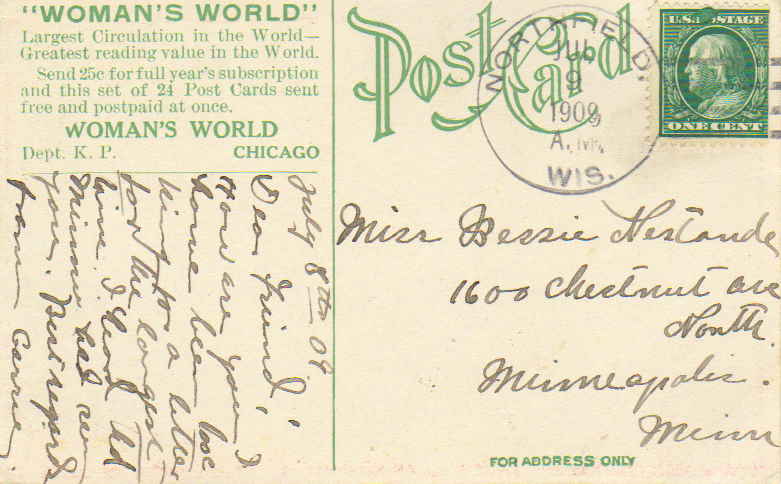 "WOMAN'S WORLD"
Largest Circulation in the World—
Greatest reading value in the World.
Send 25c for full year's subscription
and this set of 24 Post Cards sent
free and postpaid at once.
WOMAN'S WORLD
Dept. K. P. CHICAGO
Post Card
NORTHFIELD.
JUL
9
1909
A.M.
WIS.
U.S. POSTAGE
ONE CENT
Miss Bessie
1600 Chestnut ave
North.
Minneapolis.
Minn
FOR ADDRESS ONLY
July 8th 09
Dear Friend,
How are you I
have been
for a letter
for the longest
time I heard
Minnie had seen
you. Best regards
from Carrie.